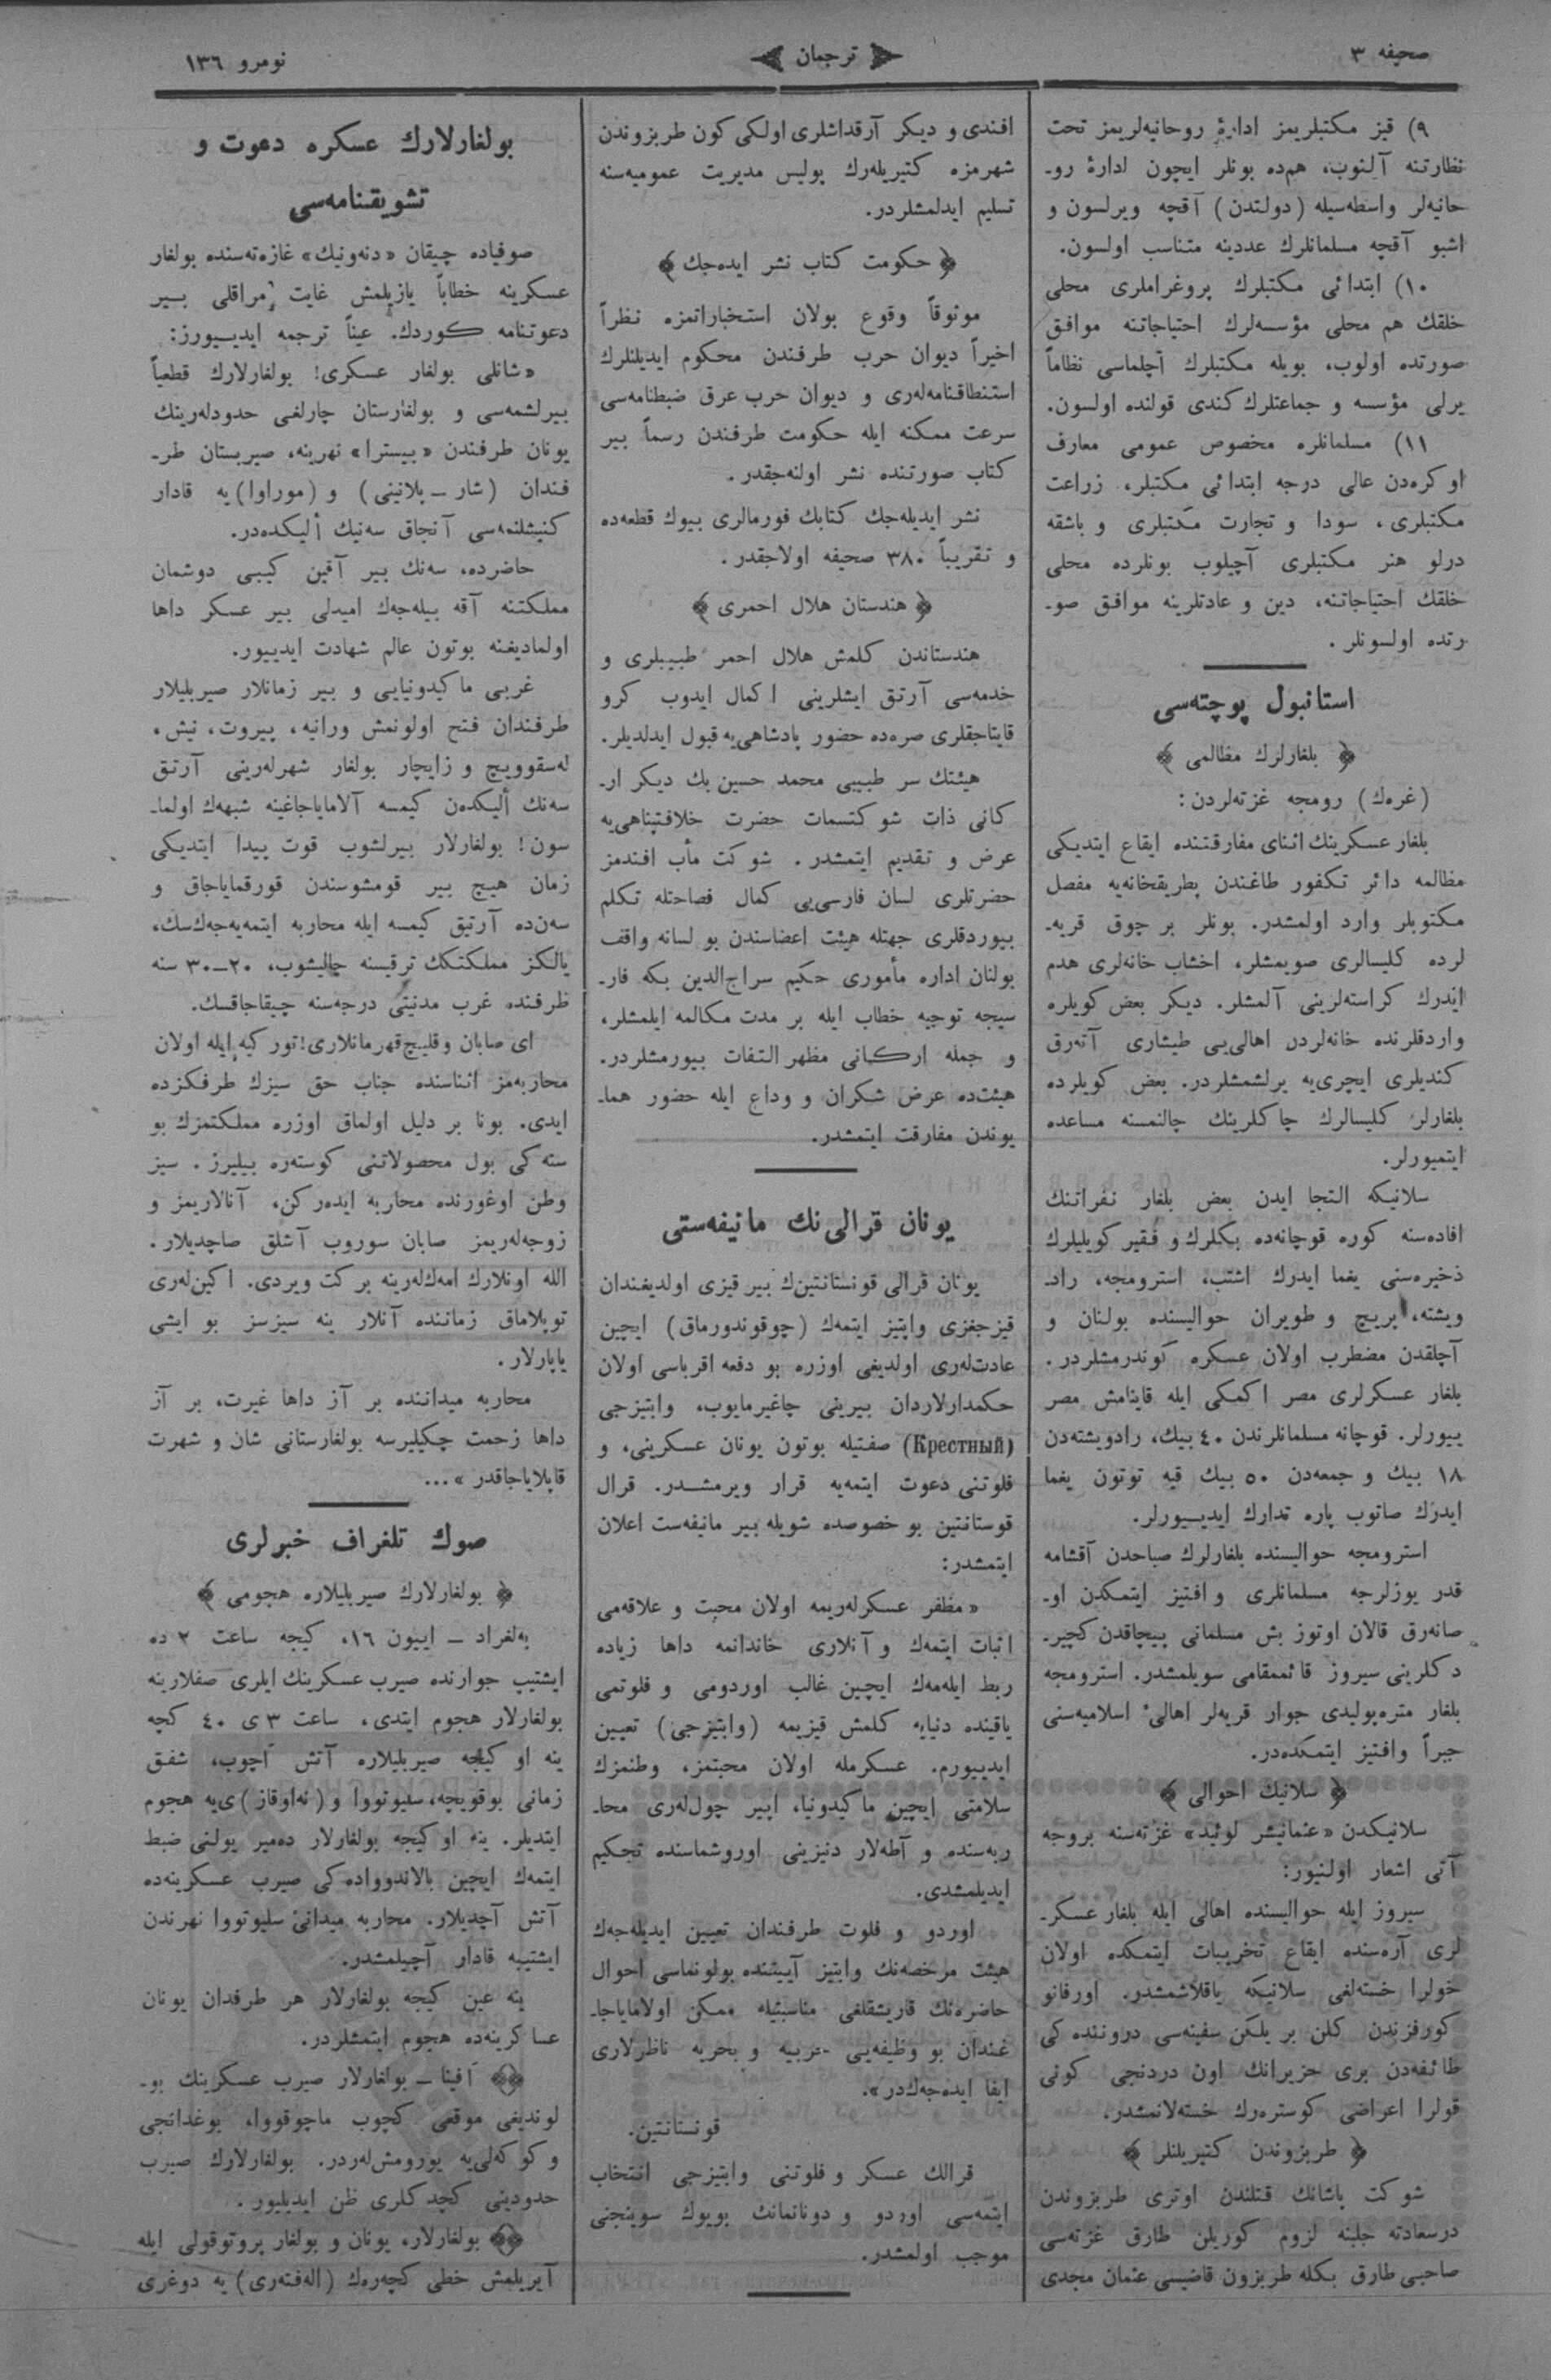 صحیفه ۳
ترجمان
نومرو ۱۳٦
۹) قیز مكتبلریمز ادارۀ روحانیه‌لریمز تحت
نظارتنه آلنوب، هم‌ده بونلر ایچون ادارۀ رو-
حانیه‌لر واسطه‌سیله (دولتدن) آقچه ویرلسون و
اشبو آقچه مسلمانلرك عددینه متناسب اولسون.
۱۰) ابتدائی مكتبلرك پروغراملری محلی
خلقك هم محلی مؤسسه‌لرك احتیاجاتنه موافق
صورتده اولوب، بویله مكتبلرك آچلماسی نظاماً
یرلی مؤسسه و جماعتلرك كندی قولنده اولسون.
۱۱) مسلمانلره مخصوص عمومی معارف
اوكره‌دن عالی درجه ابتدائی مكتبلر، زراعت
مكتبلری، سودا و تجارت مكتبلری و باشقه
درلو هنر مكتبلری آچیلوب بونلرده محلی
خلقك احتیاجاتنه، دین و عادتلرینه موافق صو-
رتده اولسونلر.
استانبول پوچته‌سی
﴿ بلغارلرك مظالمی ﴾
(غره‌ك) رومجه غزته‌لردن:
بلغار عسكرینك اثنای مفارقتنده ایقاع ایتدیكی
مظالمه دائر تكفور طاغندن پطریقخانه‌یه مفصل
مكتوبلر وارد اولمشدر. بونلر بر چوق قریه-
لرده كلیسالری صویمشلر، اخشاب خانه‌لری هدم
ایدرك كراسته‌لرینی آلمشلر. دیكر بعض كویلره
واردقلرنده خانه‌لردن اهالی‌یی طیشاری آته‌رق
كندیلری ایچری‌یه یرلشمشلردر. بعض كویلرده
بلغارلر كلیسالرك چاكلرینك چالنمسنه مساعده
ایتمیورلر.
سلانیكه التجا ایدن بعض بلغار نفراتنك
افاده‌سنه كوره قوچانه‌ده بكلرك و فقیر كویلیلرك
ذخیره‌سنی یغما ایدرك اشتب، استرومجه، راد-
ویشته، پریچ و طویران حوالیسنده بولنان و
آچلقدن مضطرب اولان عسكره كوندرمشلردر.
بلغار عسكرلری مصر اكمكی ایله قاینامش مصر
ییورلر. قوچانه مسلمانلرندن ٤۰ بیك، رادویشته‌دن
۱۸ بیك و جمعه‌دن ۵۰ بیك قیه توتون یغما
ایدرك صاتوب پاره تدارك ایدیـیورلر.
استرومجه حوالیسنده بلغارلرك صباحدن آقشامه
قدر یوزلرجه مسلمانلری وافتیز ایتمكدن او-
صانه‌رق قالان اوتوز بش مسلمانی پیچاقدن كچیر-
دكلرینی سیروز قائممقامی سویلمشدر. استرومجه
بلغار متره‌پولیدی جوار قریه‌لر اهالیٔ اسلامیه‌سنی
جبراً وافتیز ایتمكده‌در.
﴿ سلانیك احوالی ﴾
سلانیكدن «عثمانیشر لوئید» غزته‌سنه بروجه
آتی اشعار اولنیور:
سیروز ایله حوالیسنده اهالی ایله بلغار عسكر-
لری آره‌سنده ایقاع تخریبات ایتمكده اولان
خولرا خسته‌لغی سلانیكه یاقلاشمشدر. اورفانو
كورفزندن كلن بر یلكن سفینه‌سی درونده كی
طائفه‌دن بری حزیرانك اون دردنجی كونی
قولرا اعراضی كوستره‌رك خسته‌لانمشدر.
﴿ طربزوندن كتیریلنلر ﴾
شوكت پاشانك قتلندن اوتری طربزوندن
درسعادته جلبنه لزوم كوریلن طارق غزته‌سی
صاحبی طارق بكله طربزون قاضیسی عثمان مجدی
افندی و دیكر آرقداشلری اولكی كون طربزوندن
شهرمزه كتیریله‌رك پولیس مدیریت عمومیه‌سنه
تسلیم ایدلمشلردر.
﴿ حكومت كتاب نشر ایده‌جك ﴾
موثوقاً وقوع بولان استخباراتمزه نظراً
اخیراً دیوان حرب طرفندن محكوم ایدیلنلرك
استنطاقنامه‌لری و دیوان حرب عرق ضبطنامه‌سی
سرعت ممكنه ایله حكومت طرفندن رسماً بیر
كتاب صورتنده نشر اولنه‌جقدر.
نشر ایدیله‌جك كتابك فورمالری بیوك قطعه‌ده
و تقریباً ۳۸۰ صحیفه اولاجقدر.
﴿ هندستان هلال احمری ﴾
هندستاندن كلمش هلال احمر طبیبلری و
خدمه‌سی آرتق ایشلرینی اكمال ایدوب كرو
قایتاجقلری صره‌ده حضور پادشاهی‌یه قبول ایدلدیلر.
هیئتك سر طبیبی محمد حسین بك دیكر ار-
كانی ذات شوكتسمات حضرت خلافتپناهی‌یه
عرض و تقدیم ایتمشدر. شوكت مأب افندمز
حضرتلری لسان فارسی‌یی كمال فصاحتله تكلم
بیوردقلری جهتله هیئت اعضاسندن بو لسانه واقف
بولنان اداره مأموری حكیم سراج‌الدین بكه فار-
سیجه توجیه خطاب ایله بر مدت مكالمه ایلمشلر،
و جمله اركانی مظهر التفات بیورمشلردر.
هیئت‌ده عرض شكران و وداع ایله حضور هما-
یوندن مفارقت ایتمشدر.
یونان قرالی‌نك مانیفه‌ستی
یونان قرالی قونستانتین‌ك بیر قیزی اولدیغندان
قیزجغزی واپتیز ایتمه‌ك (چوقوندورماق) ایچین
عادت‌له‌ری اولدیغی اوزره بو دفعه اقرباسی اولان
حكمدارلاردان بیرینی چاغیرمایوب، واپتیزجی
(Крестный) صفتیله بوتون یونان عسكرینی، و
فلوتنی دعوت ایتمه‌یه قرار ویرمشـدر. قرال
قوستانتین بو خصوصده شویله بیر مانیفه‌ست اعلان
ایتمشدر:
« مظفر عسكرله‌ریمه اولان محبت و علاقه‌می
اثبات ایتمه‌ك و آنلاری خاندانمه داها زیاده
ربط ایله‌مه‌ك ایچین غالب اوردومی و فلوتمی
یاقینده دنیایه كلمش قیزیمه (واپتیزجی) تعیین
ایدییورم. عسكرمله اولان محبتمز، وطنمزك
سلامتی ایچین ماكیدونیا، اپیر چول‌له‌ری محا-
ربه‌سنده و آطه‌لار دنیزینی اوروشماسنده تحكیم
ایدیلمشدی.
اوردو و فلوت طرفندان تعیین ایدیله‌جه‌ك
هیئت مرخصه‌نك واپتیز آییننده بولونماسی احوال
حاضره‌نك قاریشقلغی مناسبتیله ممكن اولامایاجا-
غندان بو وظیفه‌یی حربیه و بحریه ناظرلاری
ایفا ایده‌جه‌كدر».
قونستانتین.
قرالك عسكر و فلوتنی واپتیزجی انتخاب
ایتمه‌سی اوردو و دونانمانك بویوك سوینجنی
موجب اولمشدر.
بولغارلارك عسكره دعوت و
تشویقنامه‌سی
صوفیاده چیقان «دنه‌ونیك» غازه‌ته‌سنده بولغار
عسكرینه خطاباً یازیلمش غایت مراقلی بـیر
دعوتنامه كوردك. عیناً ترجمه ایدیـیورز:
«شانلی بولغار عسكری! بولغارلارك قطعیاً
بیرلشمه‌سی و بولغارستان چارلغی حدودله‌رینك
یونان طرفندن «بیسترا» نهرینه، صیربستان طر-
فندان (شار ـ پلانینی) و (موراوا)یه قادار
كنیشلنمه‌سی آنجاق سه‌نیك أَلیكده‌در.
حاضرده، سه‌نك بیر آقین كیبی دوشمان
مملكتنه آقه بیله‌جه‌ك امیدلی بیر عسكر داها
اولمادیغنه بوتون عالم شهادت ایدییور.
غربی ماكیدونیایی و بیر زمانلار صیربلیلار
طرفندان فتح اولونمش ورانیه، پیروت، نیش،
له‌سقوویج و زایچار بولغار شهرله‌رینی آرتق
سه‌نك ألیكده‌ن كیمسه آلامایاجاغینه شبهه‌ك اولما-
سون! بولغارلار بیرلشوب قوت پیدا ایتدیكی
زمان هیچ بیر قومشوسندن قورقمایاجاق و
سه‌ن‌ده آرتیق كیمسه ایله محاربه ایتمه‌یه‌جه‌ك‌سك،
یالكز مملكتكك ترقیسنه چالیشوب، ۲۰ـ۳۰ سنه
ظرفنده غرب مدنیتی درجه‌سنه چیقاجاقسك.
ای صابان و قلیچ قهرمانلاری! توركیه ایله اولان
محاربه‌مز اثناسنده جناب حق سیزك طرفكزده
ایدی. بونا بر دلیل اولماق اوزره مملكتمزك بو
سنه‌كی بول محصولاتنی كوسته‌ره بیلیرز. سیز
وطن اوغورنده محاربه ایده‌ركن، آنالاریمز و
زوجه‌له‌ریمز صابان سوروب آشلق صاچدیلار.
الله اونلارك امه‌ك‌له‌رینه بركت ویردی. اكین‌له‌ری
توپلاماق زماننده آنلار ینه سیزسز بو ایشی
یاپارلار.
محاربه میداننده بر آز داها غیرت، بر آز
داها زحمت چكیلیرسه بولغارستانی شان و شهرت
قاپلایاجاقدر »...
صوك تلغراف خبرلری
﴿ بولغارلارك صیربلیلاره هجومی ﴾
به‌لغراد ـ اییون ۱٦، كیجه ساعت ۲ ده
ایشتیپ جوارنده صیرب عسكرینك ایلری صفلارینه
بولغارلار هجوم ایتدی، ساعت ۳ ی ٤۰ كچه
ینه او كیجه صیربلیلاره آتش آچوب، شفق
زمانی بوقویچه، سلیوتووا و (نه‌اوقاز)ی‌یه هجوم
ایتدیلر. ینه او كیجه بولغارلار ده‌میر یولنی ضبط
ایتمه‌ك ایچین بالاندوواده‌كی صیرب عسكرینه‌ده
آتش آچدیلار. محاربه میدانیٔ سلیوتووا نهرندن
ایشتیپه قادار آچیلمشدر.
ینه عین كیجه بولغارلار هر طرفدان یونان
عساكرینه‌ده هجوم ایتمشلردر.
آفینا ـ بولغارلار صیرب عسكرینك بو-
لوندیغی موقعی كچوب ماچوقووا، بوغدانجی
و كوكه‌لی‌یه یورومش‌له‌ردر. بولغارلارك صیرب
حدودینی كچدكلری ظن ایدیلیور.
بولغارلار، یونان و بولغار پروتوقولی ایله
آیریلمش خطی كچه‌ره‌ك (اله‌فته‌ری) یه دوغری